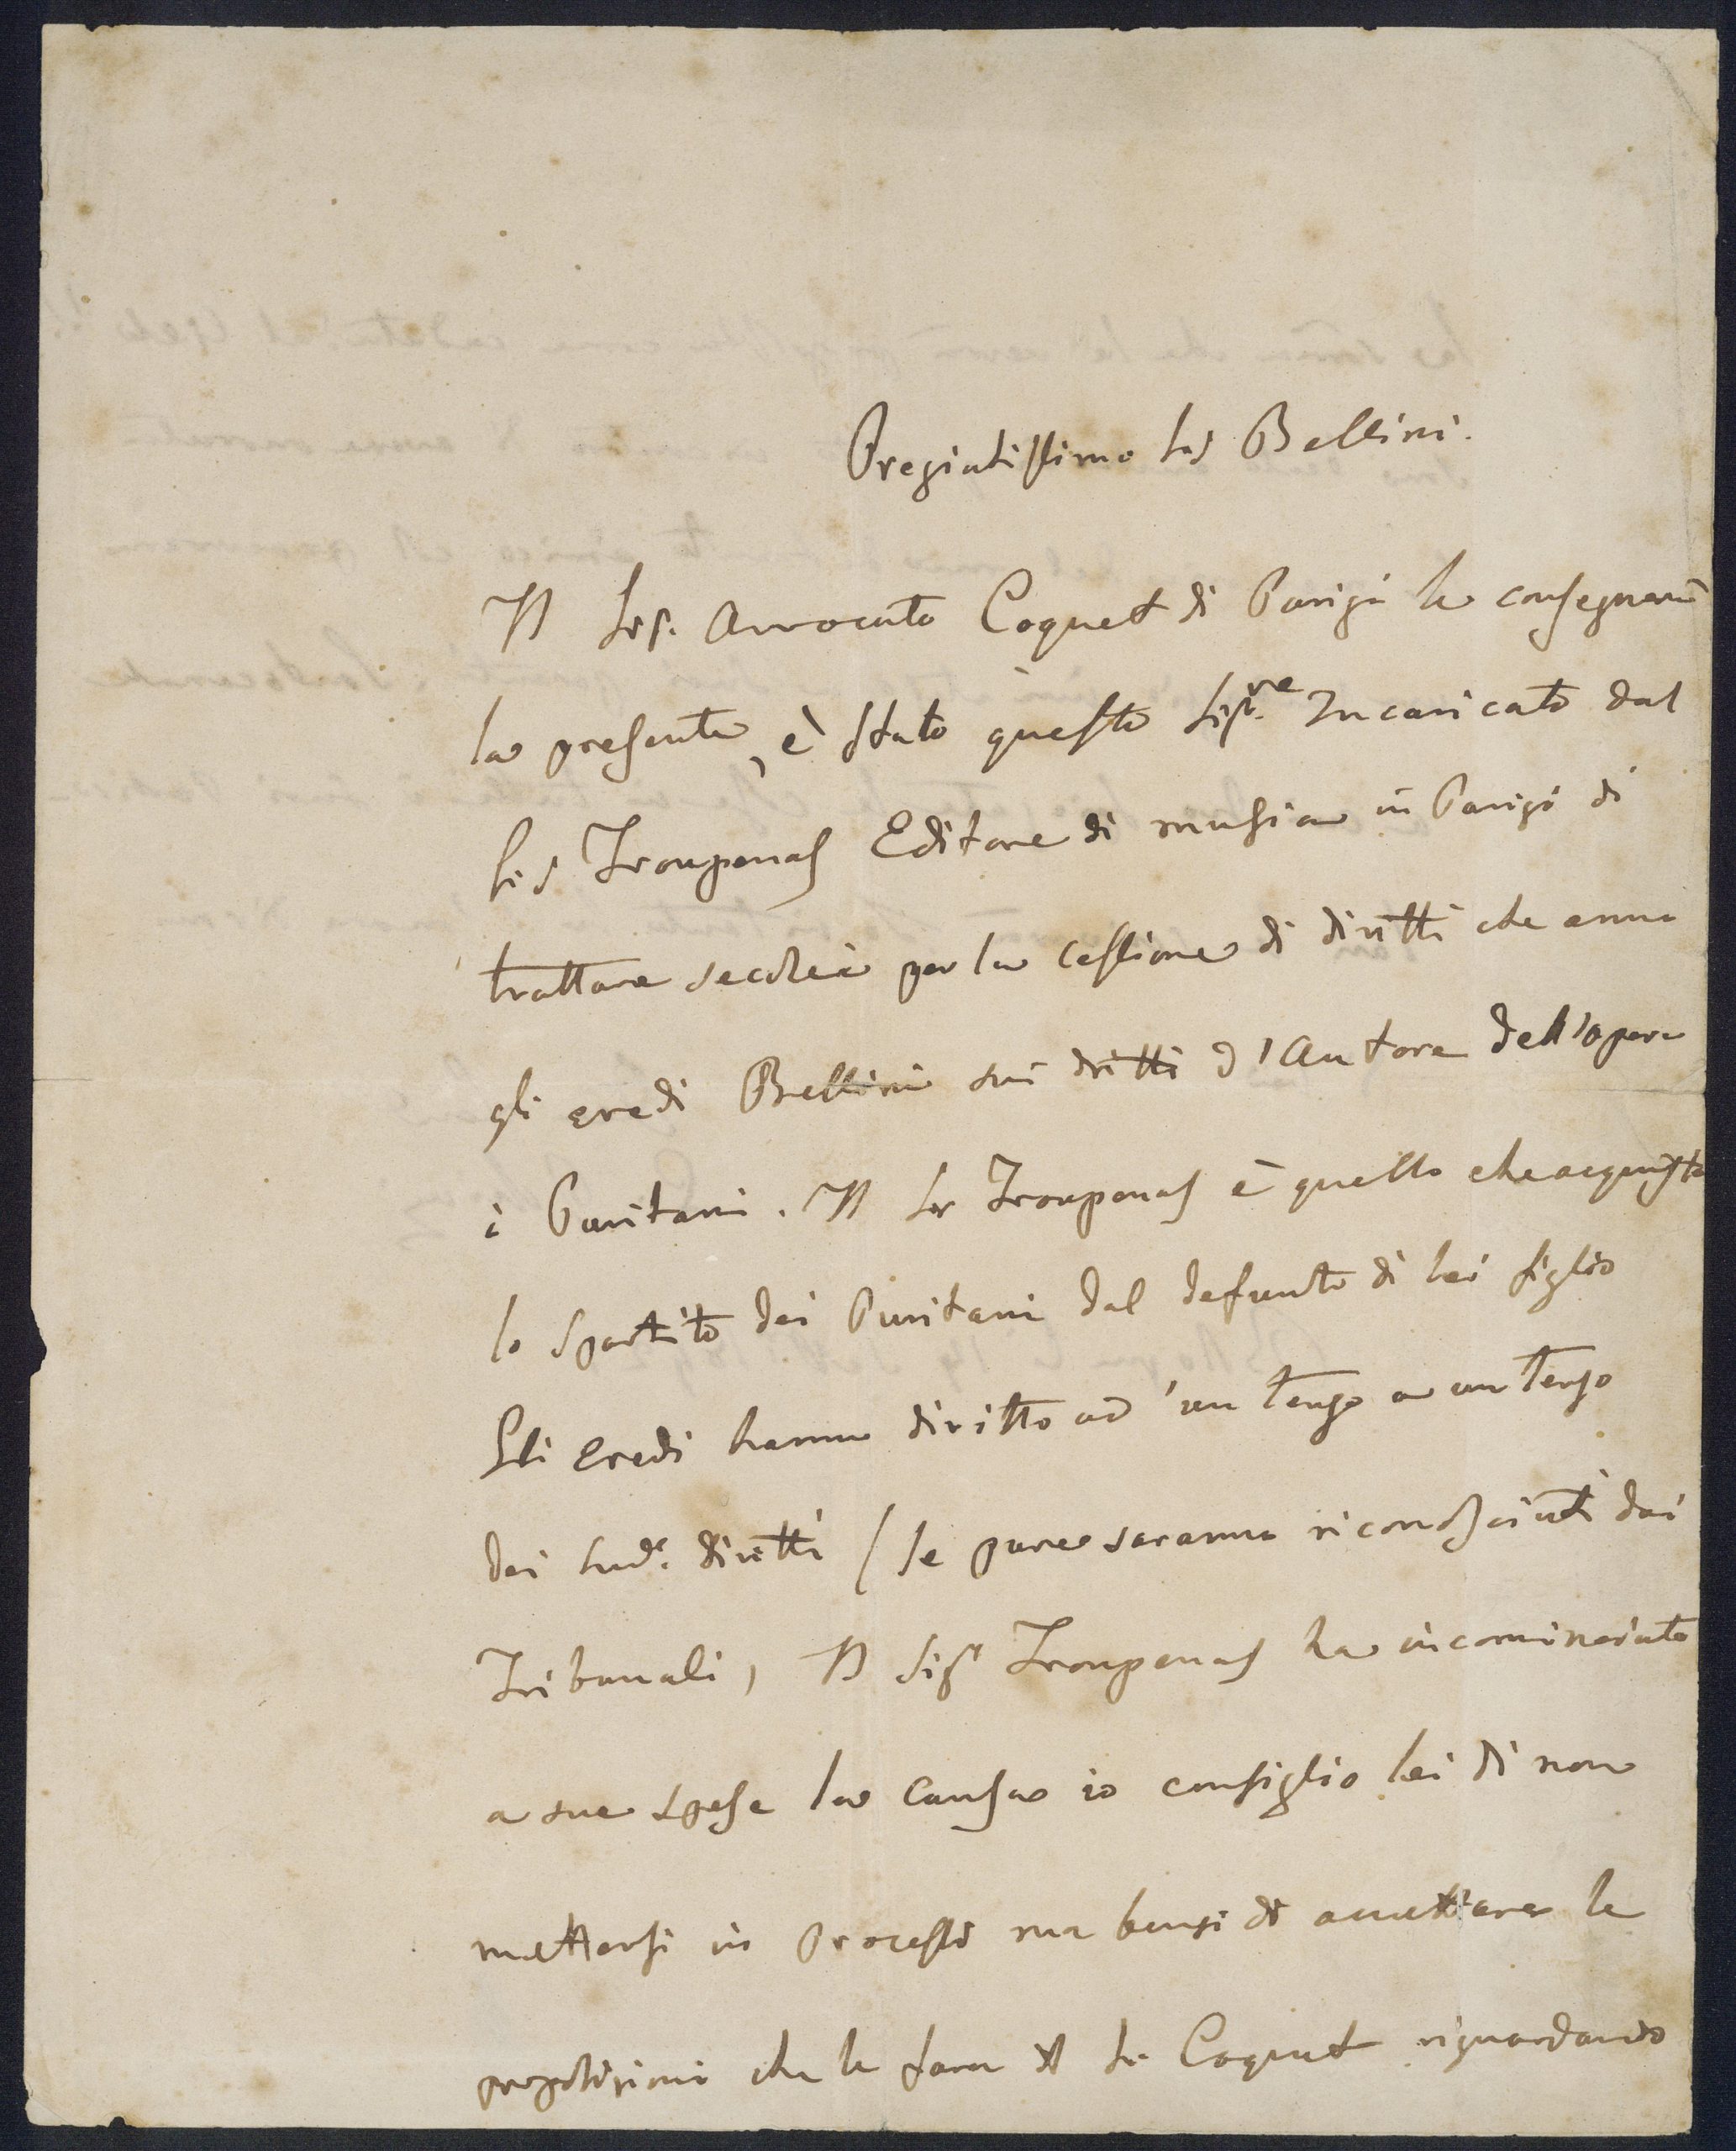 Pregiatissimo Sig Bellini.
Il Sig. Avvocato Coquet di Parigi le consegnerà
la presente, è stato questo Sig.re Incaricato dal
Sig Troupenas Editore di musica in Parigi di
trattare secolei per la cessione di diritti che anno
gli eredi Bellini sui dritti d'Autore dell'opera
i Puritani. Il Sr Troupenas è quello che acquistò
lo Spartito dei Puritani dal defunto di lei figlio
Gli Eredi hanno diritto ad un Terzo a un Terzo
dei sud. diritti (se pure saranno riconosciuti dai
Tribunali, Il Sigr Troupenas ha incominciato
a sue spese la causa io consiglio lei di non
mettersi in Processi ma bensi di accettare le
propotizioni che le farà il Sr Coquet riguardando